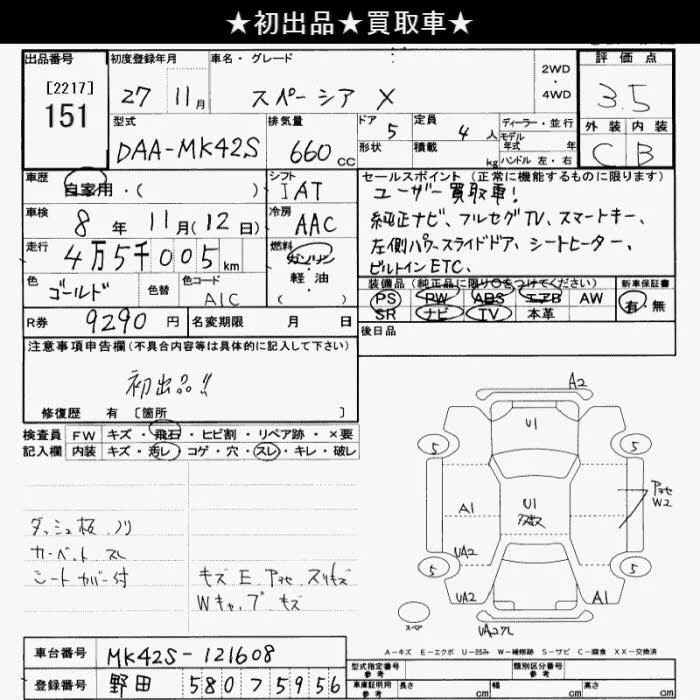 ★初出品★買取車★
出品番号 初度登録年月 車名・グレード 評価点
[2217] 27 11月 スペーシア X 2WD・4WD 3.5
151 外装 内装
型式 排気量 ドア 定員 ディーラー・並行 C B
DAA-MK42S 660cc 5 4人 モデル年式 年
形状 積載 kg ハンドル 左・右
車歴 シフト セールスポイント (正常に機能するものに限ります)
自家用・( ) IAT ユーザー買取車!
車検 冷房 純正ナビ、フルセグTV、スマートキー、
8年11月(12日) AAC 左側パワースライドドア、シートヒーター、
走行 燃料 ビルトインETC、
4万5千005km ガソリン
色 色替 色コード 軽・油 装備品 (純正品に限り○をつけてください) 新車保証書
ゴールド A1C ( ) PS PW ABS エアB AW 有・無
SR ナビ TV 本革
R券 9290円 名変期限 月 日 後日品
注意事項申告欄(不具合内容等は具体的に記入して下さい)
初出品!!
修復歴 有 [箇所 ]
検査員 FW キズ・飛石・ヒビ割・リペア跡・×要
記入欄 内装 キズ・汚レ・コゲ・穴・スレ・キレ・破レ
ダッシュ板、ノリ
カーペット スレ
シートカバー付
キズ E、アセ、スリキズ
Wキャップ キズ
A2
U1
5 5
A1 U1 多数 アセ W2
UA2
5 5
UA2 A1
スペア
A-キズ E-エクボ U-凹み W-補修跡 S-サビ C-腐食 XX-交換済
車台番号 MK42S-121608
登録番号 野田 580 75956
型式指定番号 参考 類別区分番号 参考
車庫証明用 参考 長さ cm 幅 cm 高さ cm